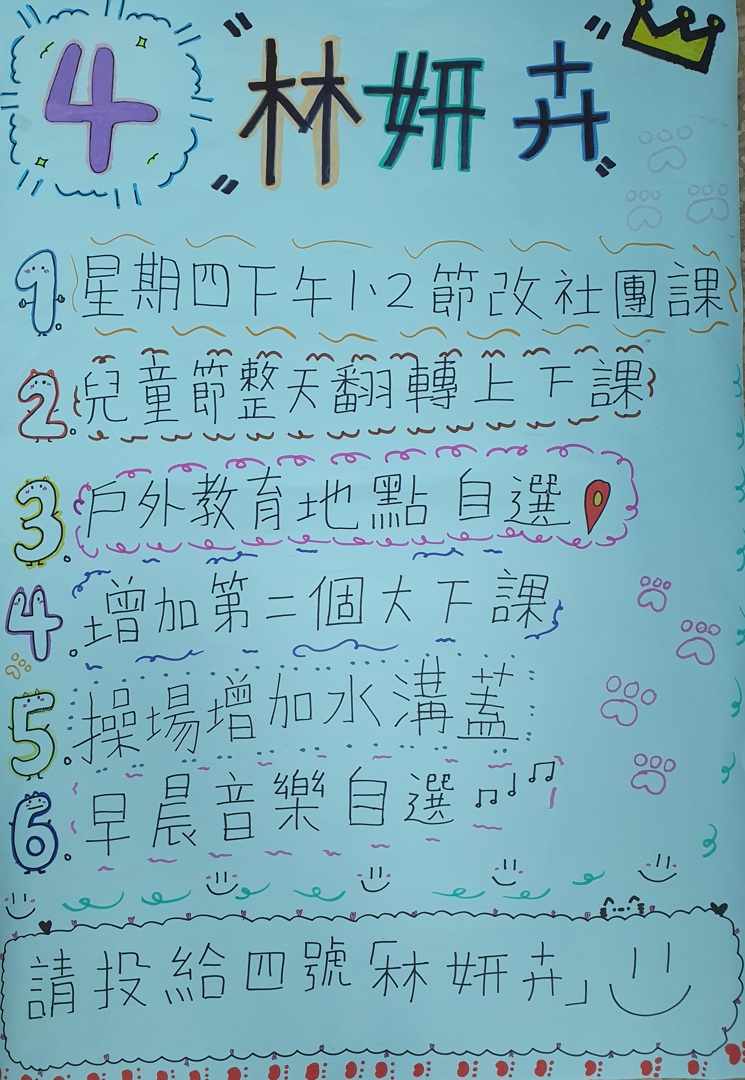 4 "林妍卉"
1. 星期四下午1、2節改社團課
2. 兒童節整天翻轉上下課
3. 戶外教育地點自選
4. 增加第二個大下課
5. 操場增加水溝蓋
6. 早晨音樂自選
請投給四號「林妍卉」